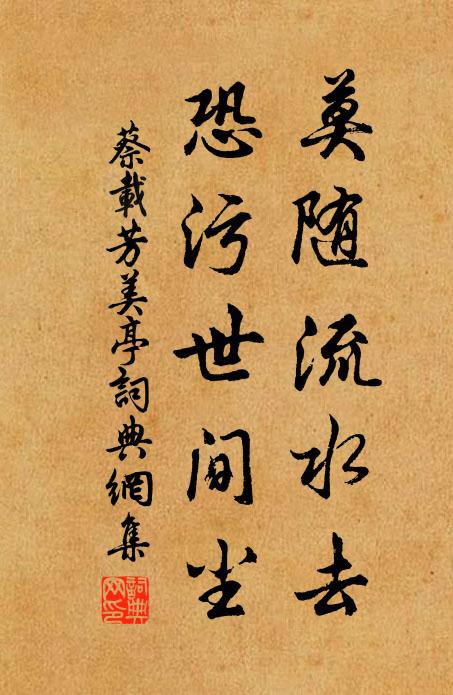 莫随流水去
恐污世间尘
蔡載芳美亭詞典網集
詞典网印